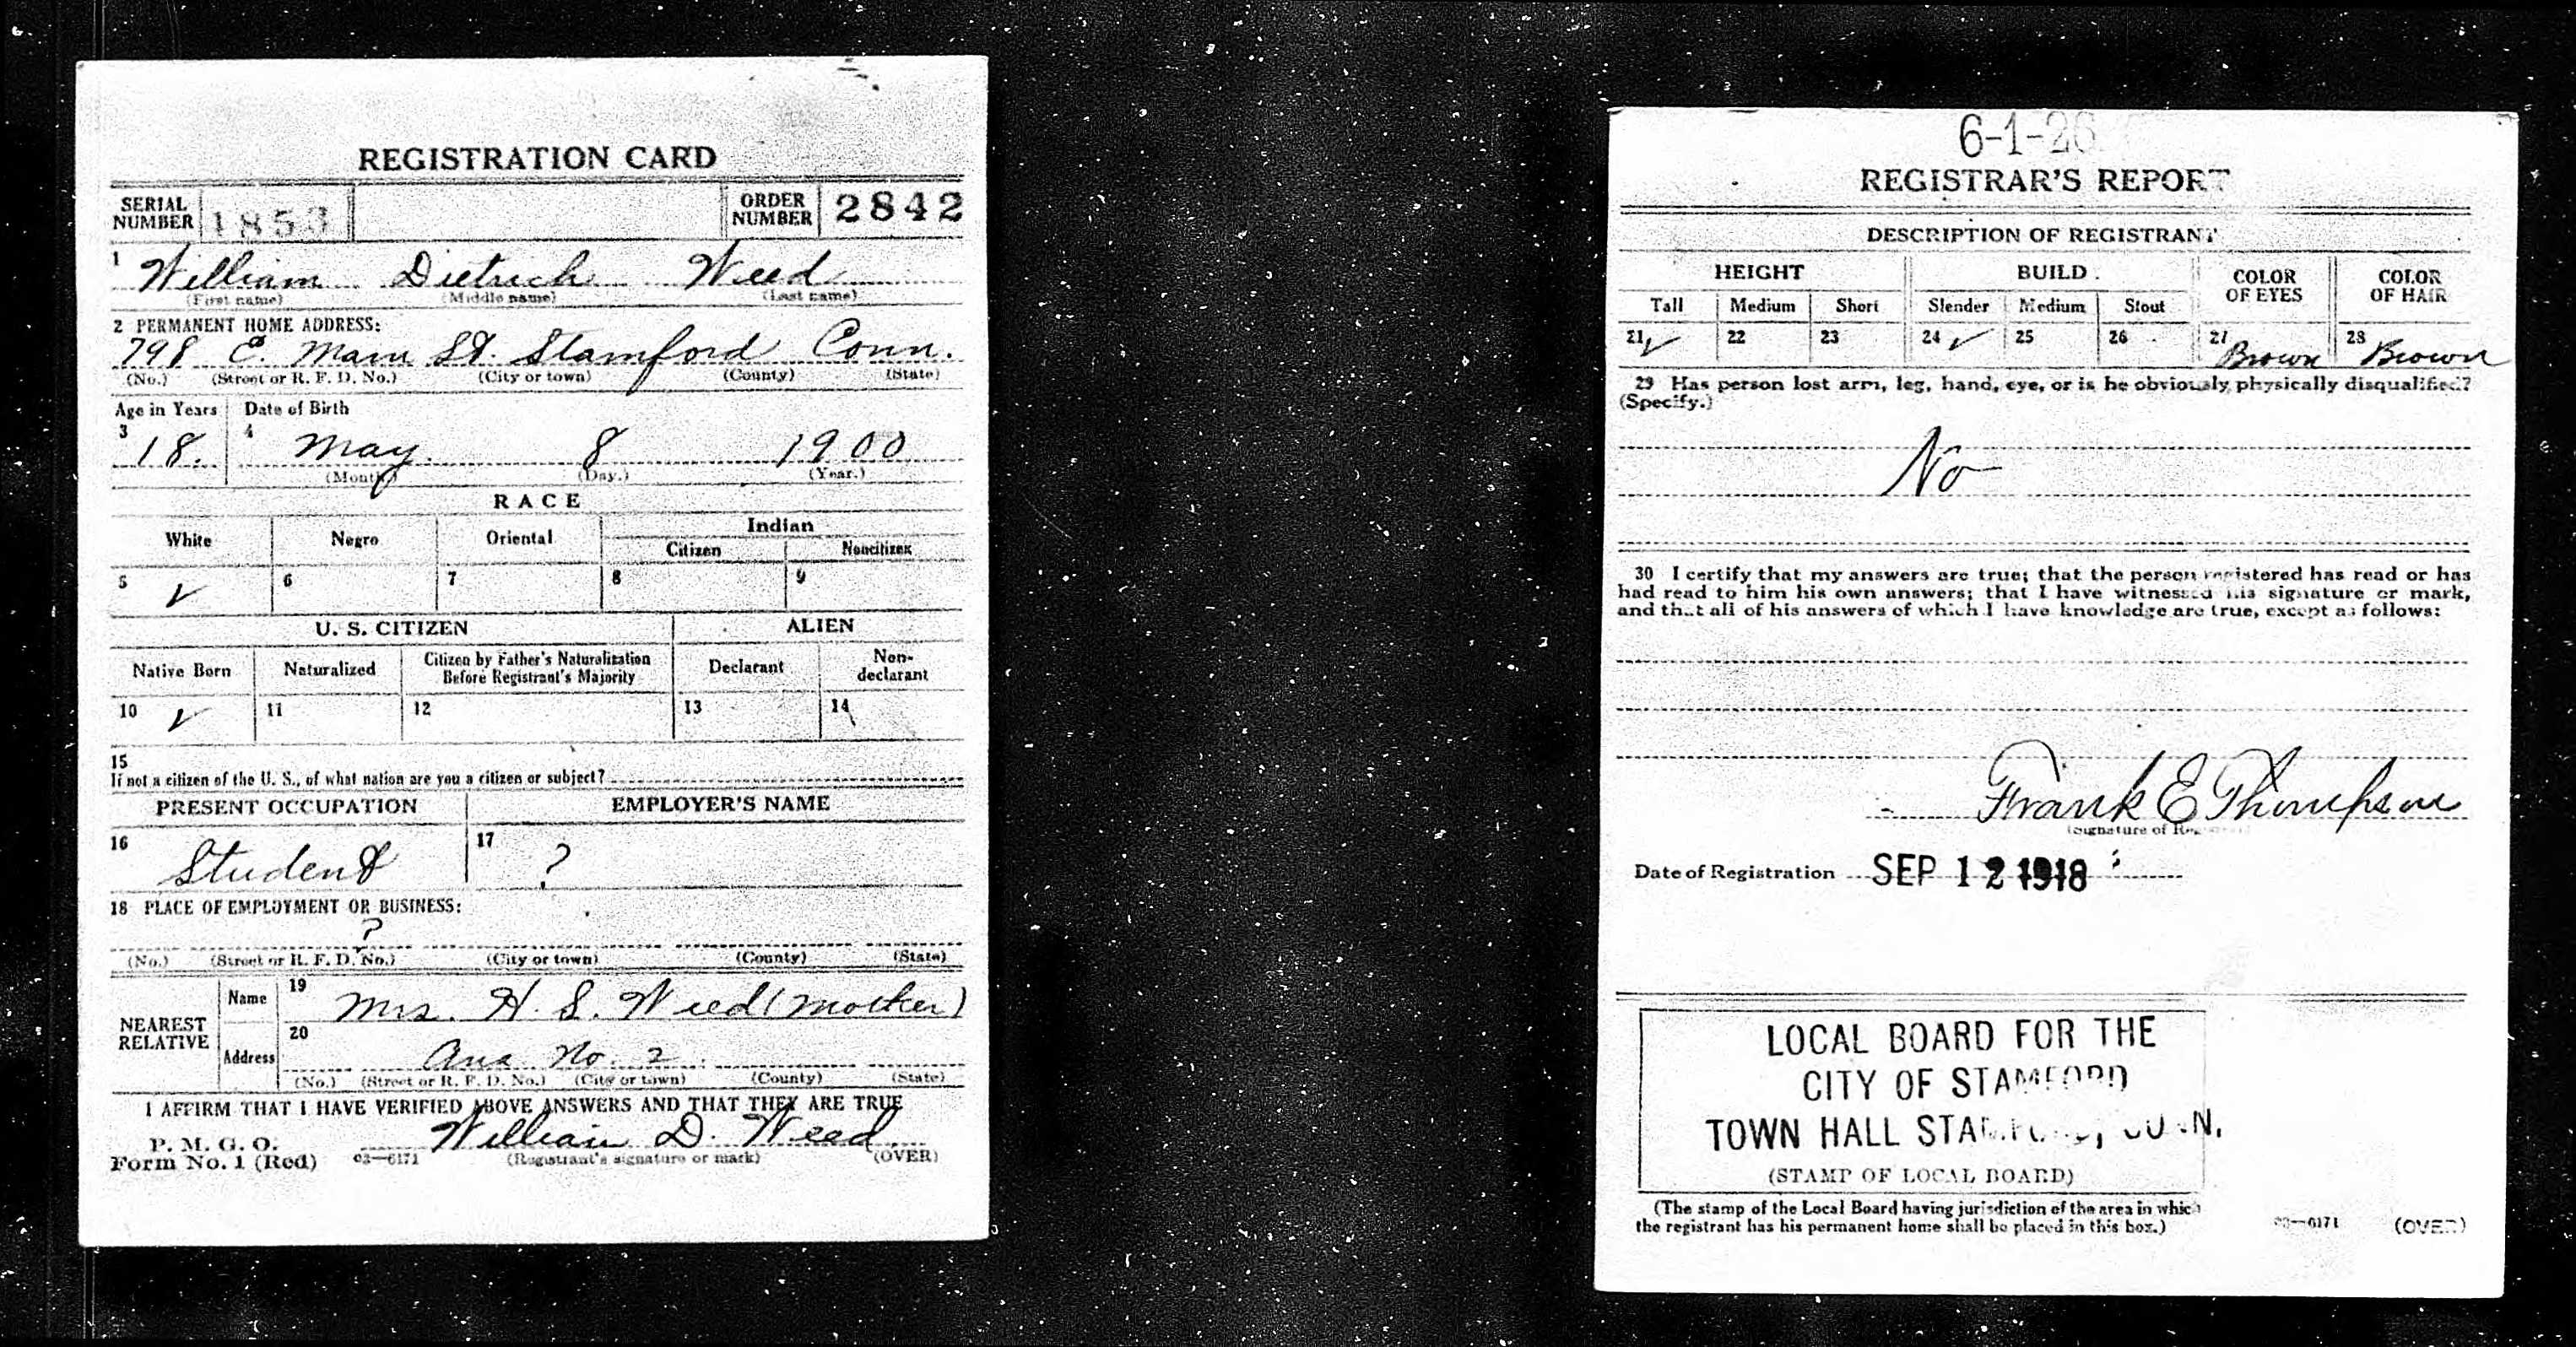 REGISTRATION CARD
SERIAL NUMBER 1853 ORDER NUMBER 2842
1 William Dietrich Weed
(First name) (Middle name) (Last name)
2 PERMANENT HOME ADDRESS:
798 E. Main St. Stamford Conn.
(No.) (Street or R. F. D. No.) (City or town) (County) (State)
Age in Years Date of Birth
3 18. 4 May 8 1900
(Month.) (Day.) (Year.)
RACE
White Negro Oriental Indian
Citizen Noncitizen
5 ✓ 6 7 8 9
U. S. CITIZEN ALIEN
Native Born Naturalized Citizen by Father's Naturalization Before Registrant's Majority Declarant Non-declarant
10 ✓ 11 12 13 14
15
If not a citizen of the U. S., of what nation are you a citizen or subject?
PRESENT OCCUPATION EMPLOYER'S NAME
16 Student 17 ?
18 PLACE OF EMPLOYMENT OR BUSINESS:
?
(No.) (Street or R. F. D. No.) (City or town) (County) (State)
NEAREST RELATIVE Name 19 Mrs. H. S. Weed (Mother)
Address 20 Ans No. 2.
(No.) (Street or R. F. D. No.) (City or town) (County) (State)
I AFFIRM THAT I HAVE VERIFIED ABOVE ANSWERS AND THAT THEY ARE TRUE
P. M. G. O.
Form No. 1 (Red) 03—6171 William D. Weed.
(Registrant's signature or mark) (OVER)
6-1-26
REGISTRAR'S REPORT
DESCRIPTION OF REGISTRANT
HEIGHT BUILD COLOR OF EYES COLOR OF HAIR
Tall Medium Short Slender Medium Stout
21 ✓ 22 23 24 ✓ 25 26 27 Brown 28 Brown
29 Has person lost arm, leg, hand, eye, or is he obviously physically disqualified?
(Specify.)
No
30 I certify that my answers are true; that the person registered has read or has
had read to him his own answers; that I have witnessed his signature or mark,
and that all of his answers of which I have knowledge are true, except as follows:
Frank E Thompson
(Signature of
Date of Registration SEP 12 1918
LOCAL BOARD FOR THE
CITY OF STAMFORD
TOWN HALL STAMFORD, CONN.
(STAMP OF LOCAL BOARD)
(The stamp of the Local Board having jurisdiction of the area in which
the registrant has his permanent home shall be placed in this box.)
03—6171 (OVER)